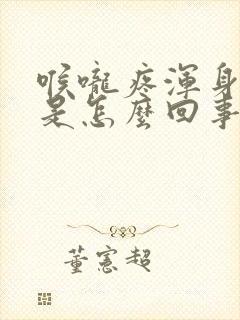 喉嚨疼渾身
是怎麼回事
董憲超